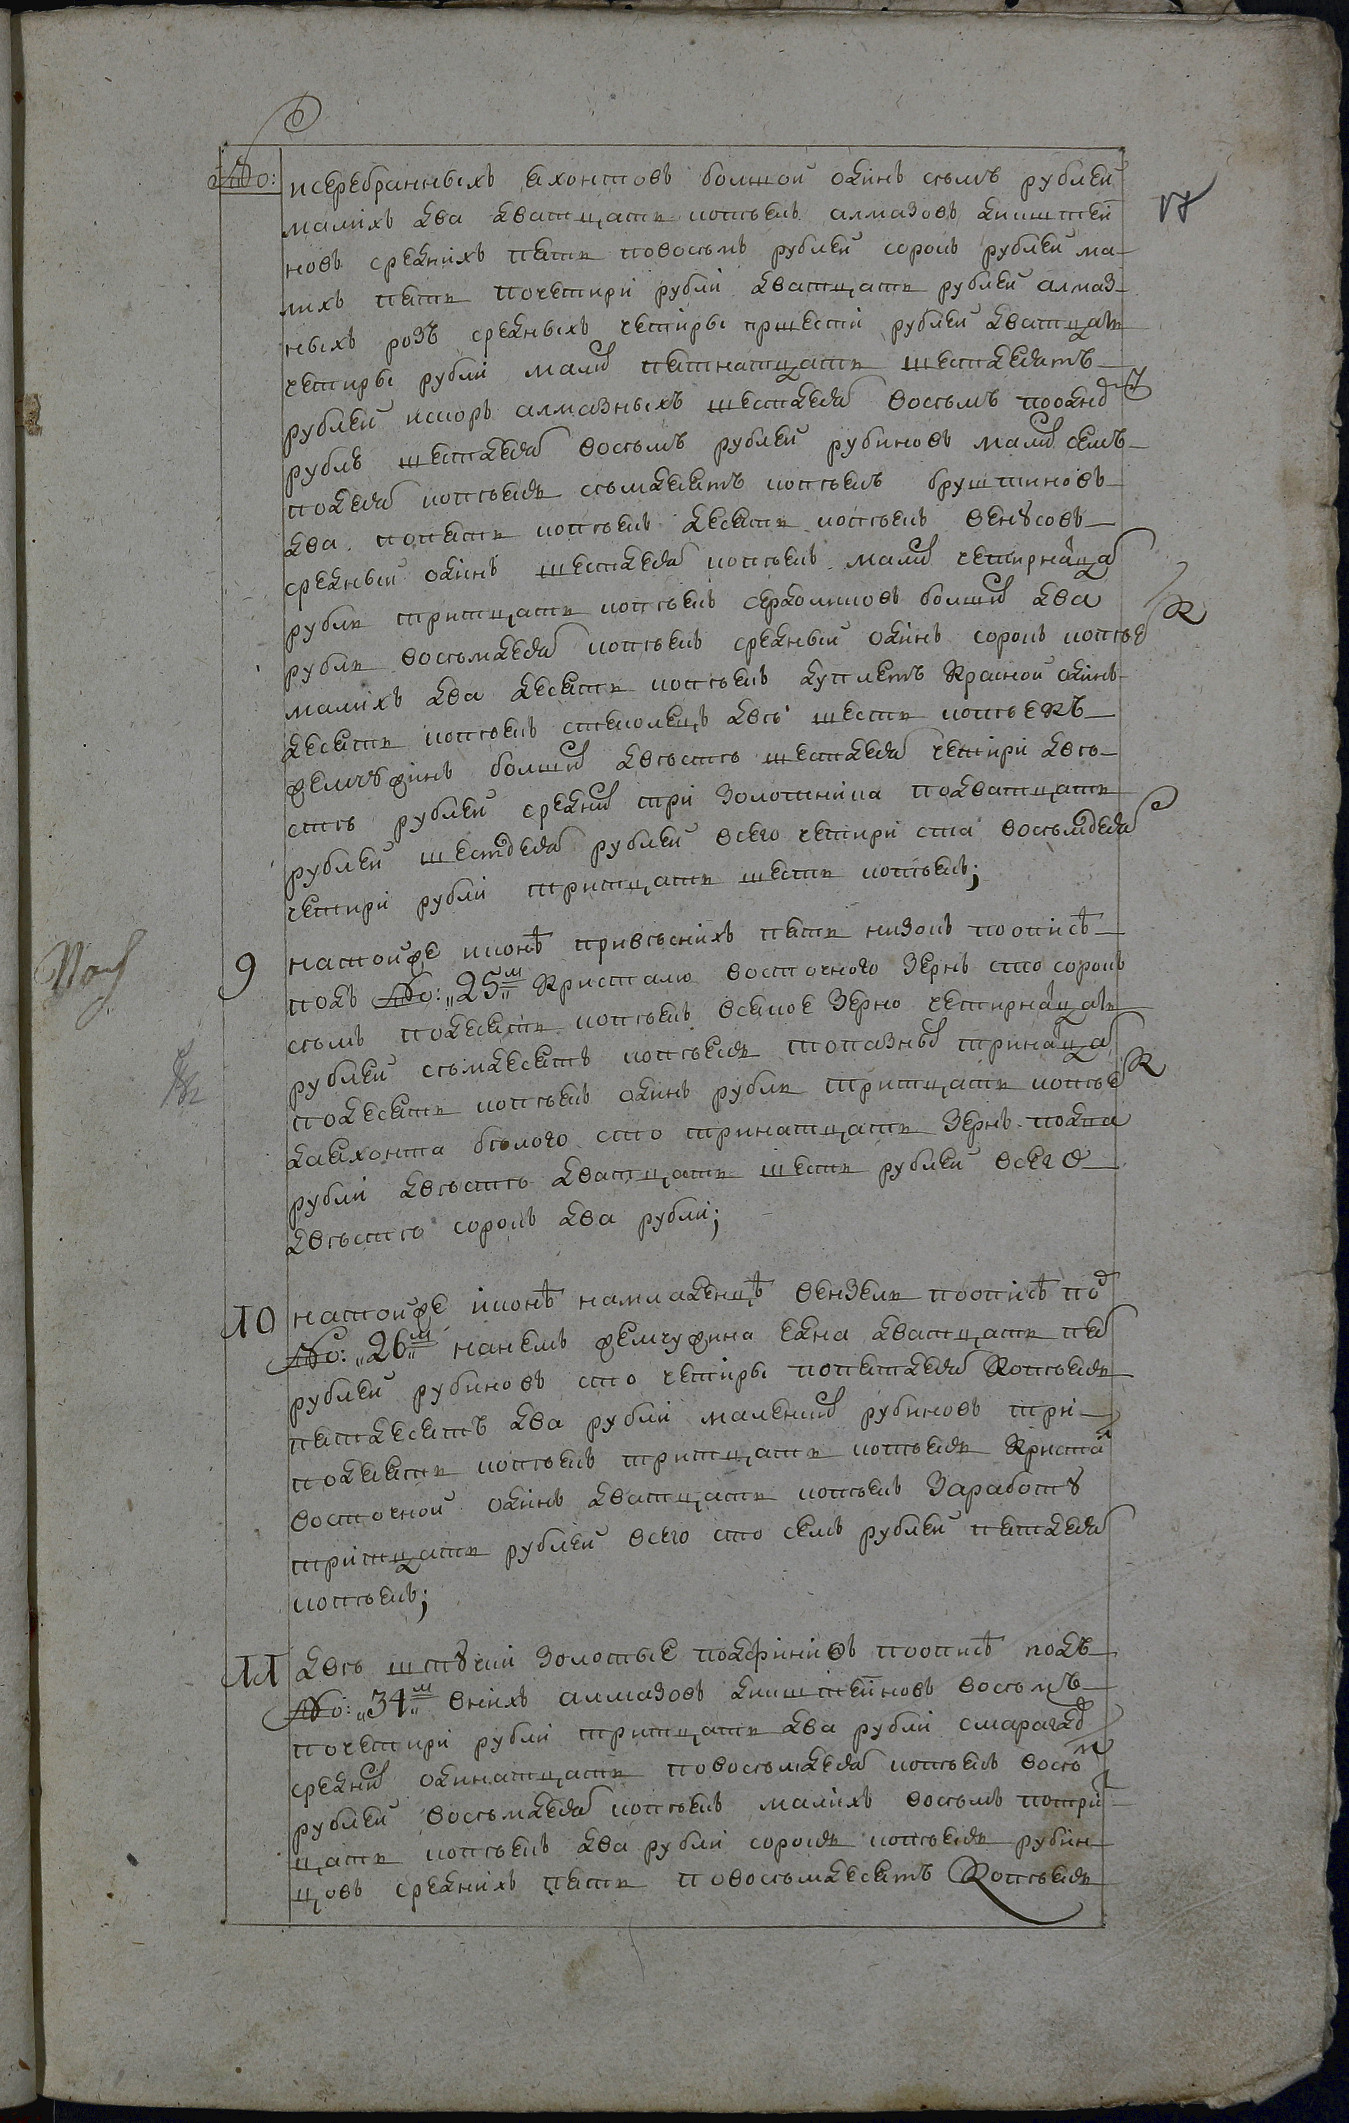 №:
исеребранныхъ яхонтовъ болшой одинъ семь рублей
малихъ два дватцати копеекъ алмазовъ дикштей
новъ средних пяти повосемь рублей сорокъ рублей ма
лихъ пяти почетири рубли дватцати рублей алмаз
ныхъ розъ средныхъ четыре пошести рублей дватцати
четыре рубли малих пятнатцати шестдесятъ
рублей искоръ алмазныхъ шестдесят восемъ поодно
рублю шестдесят восемъ рублей рубиновъ малих семь
подесят копеекъ семдесятъ копеекъ бруштиновъ
два попяти копеекъ десяти копеекъ венусовъ
средный одинъ шестдесят копеекъ малих четирнадца
рубли тритцати копеекъ сердоликовъ болших два
рубли восемдесят копеекъ средный одинъ сорокъ копее
малихъ два десяти копеекъ дуплетъ красной одинъ
десяти копеекъ стеколецъ две шести копеекъ
жемчужинъ болших двести шестдесят четири две
сте рублей средних три золотника подватцати
рублей шестдесят рублей всего четири ста восемдесят
четири рубли тритцати шести копеекъ;
9 натойже иконе привесних пяти низокъ поописе
подъ №: 25м кристалю восточного зернъ сто сорокъ
семь подесяти копеекъ всякое зерно четирнадцати
рублей семдесятъ копеекъ топазных тринадца
подесяти копеекъ одинъ рубли тритцати копее
даяхонта белого сто тринатцати зернъ подва
рубли двести дватцати шести рублей всего
двести сорокъ два рубли;
10 натойже иконе намладенце вензели поописе под
№: 26м нанемъ жемчужина една дватцати пя
рублей рубиновъ сто четыре попятдесят копеекъ
пятдесятъ два рубли маленких рубиновъ три
подесяти копеекъ тритцати копеекъ криста
восточной одинъ дватцати копеекъ заработу
тритцати рублей всего сто семъ рублей пятдесят
копеекъ;
11 две штуки золотые подфиниѳъ поописе подъ
№: 34м вних алмазовъ дикштейновъ восемъ
почетири рубли тритцати два рубли смарагд
средних одинатцати повосемдесят копеекъ восем
рублей восемдесят копеекъ малихъ восемъ потри
цати копеекъ два рубли сорокъ копеекъ рубин
цовъ среднихъ пяти повосемдесятъ копеекъ